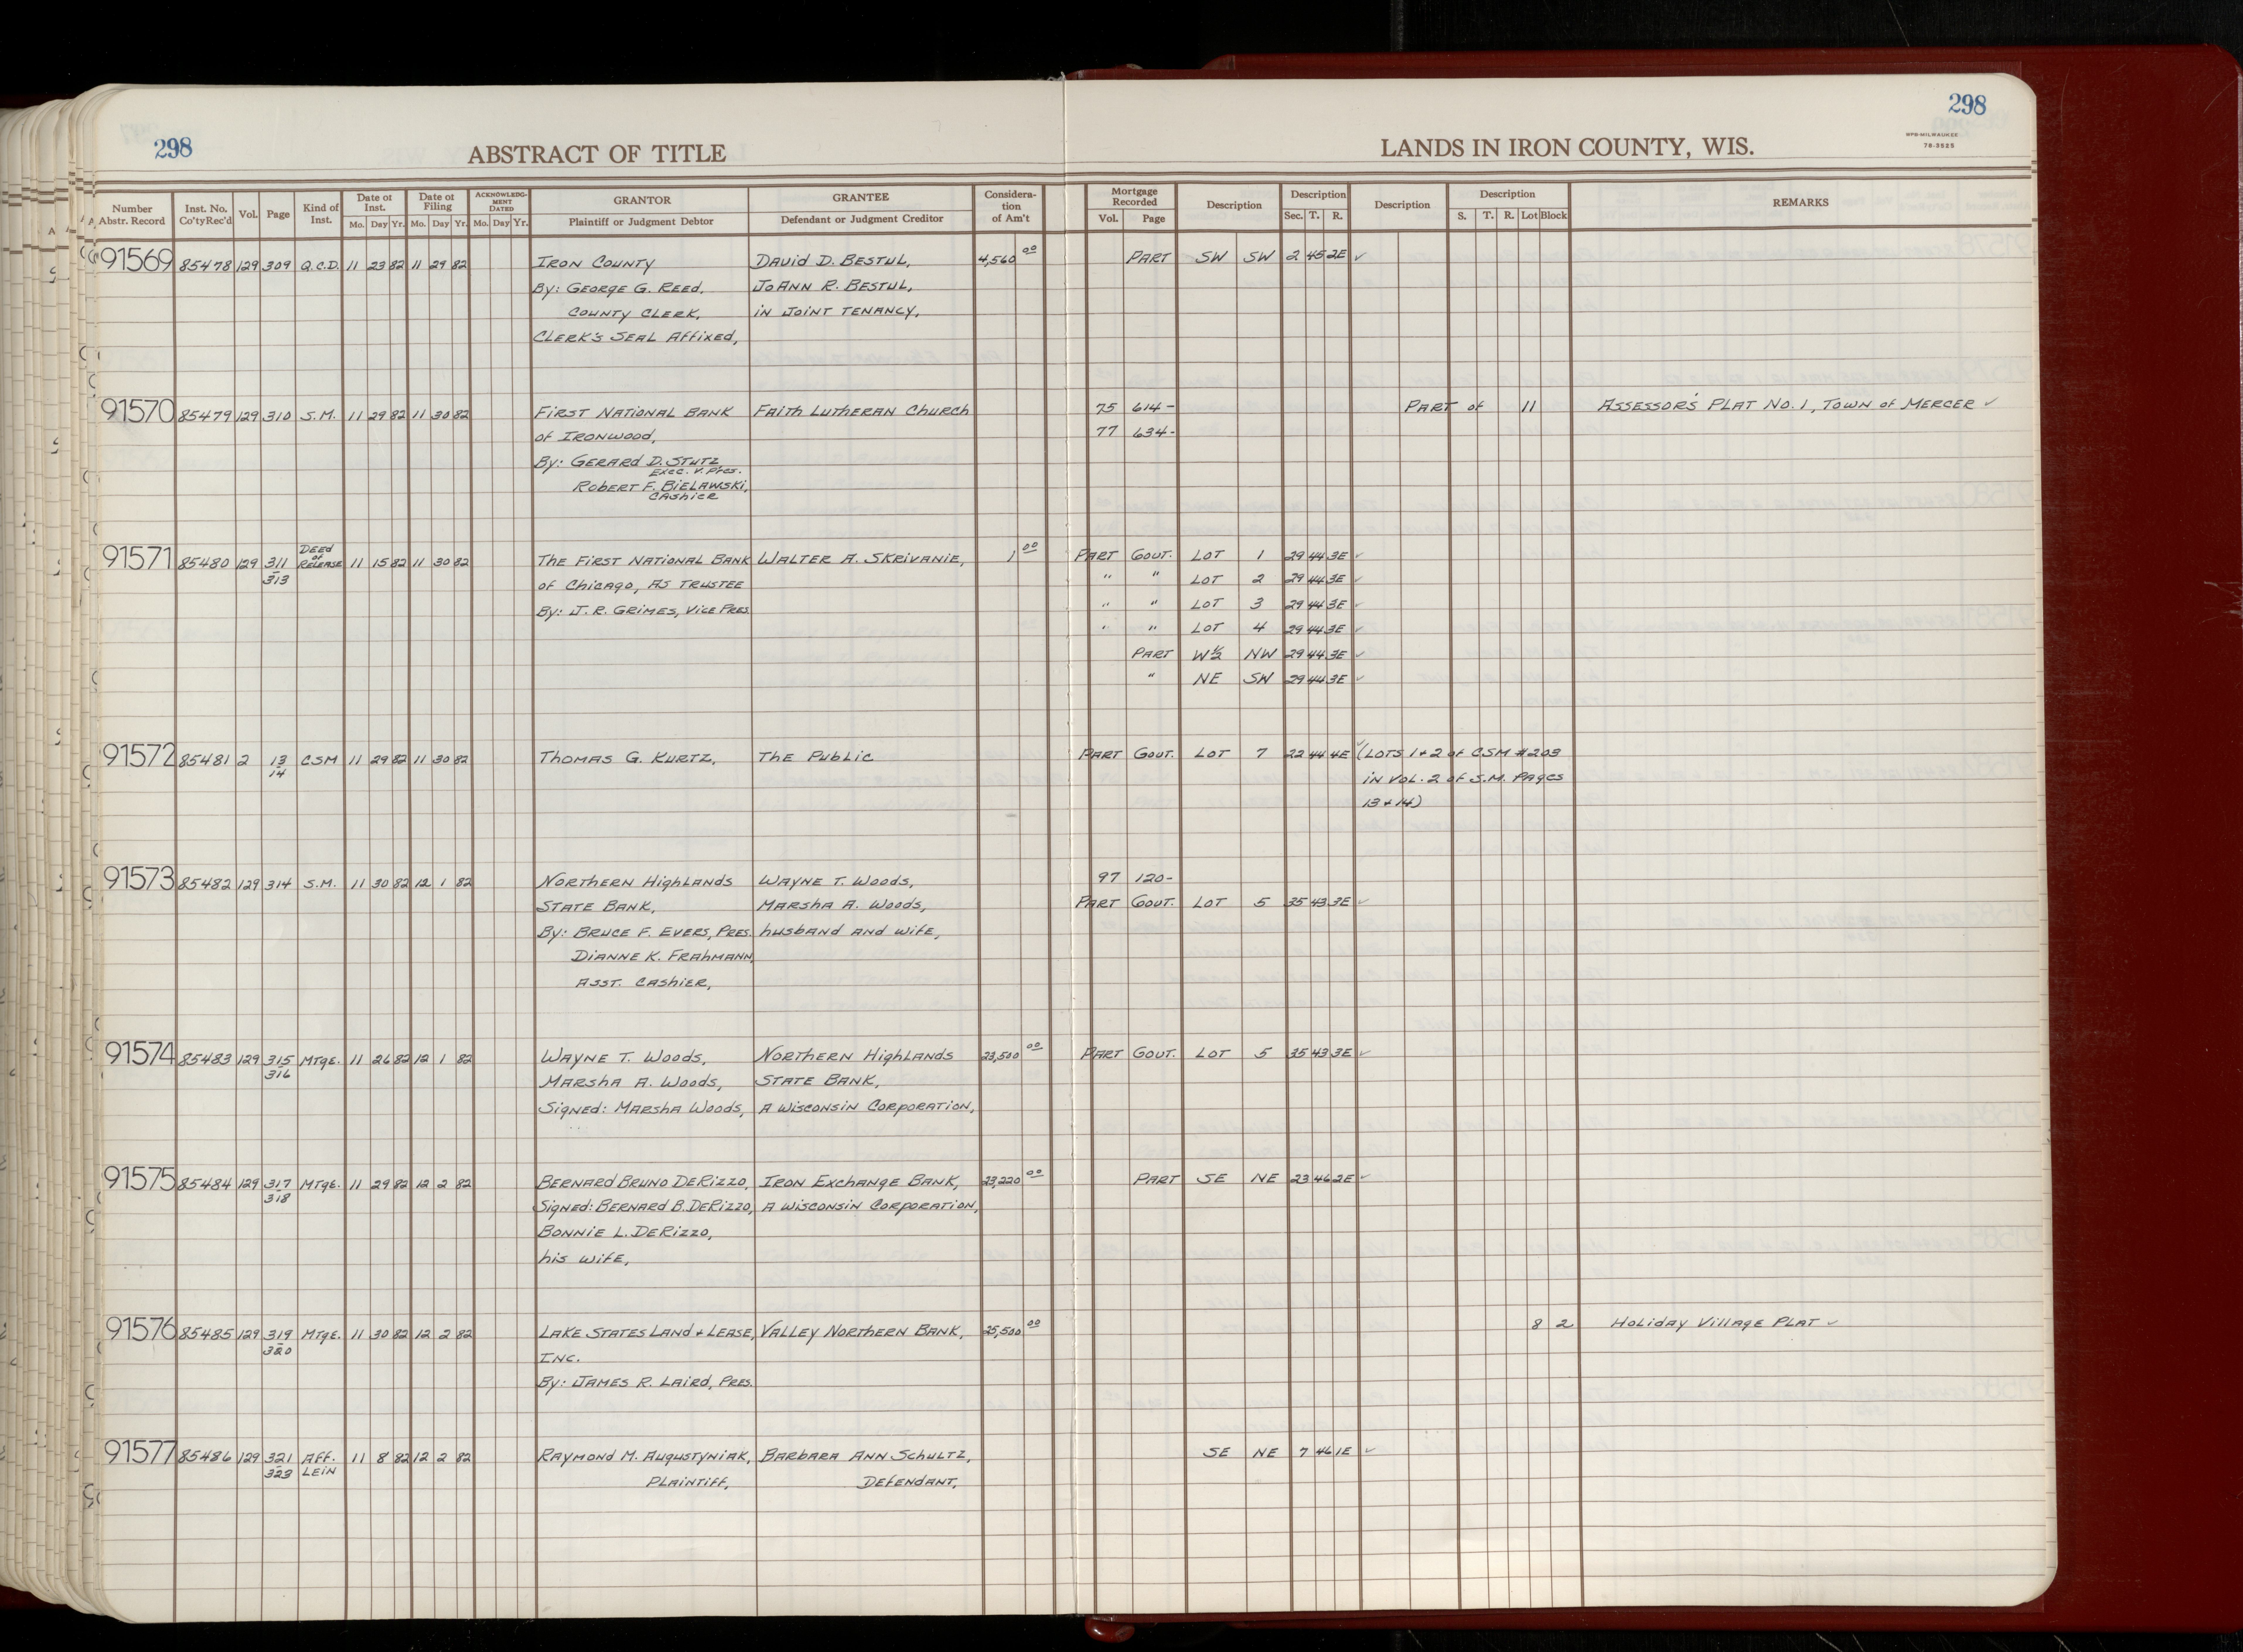 298
298
ABSTRACT OF TITLE
LANDS IN IRON COUNTY, WIS.
WPB-MILWAUKEE
78-3525
Number Abstr. Record | Inst. No. Co'ty Rec'd | Vol. | Page | Kind of Inst. | Date of Inst. Mo. Day Yr. | Date of Filing Mo. Day Yr. | ACKNOWLEDGMENT DATED Mo. Day Yr. | GRANTOR Plaintiff or Judgment Debtor | GRANTEE Defendant or Judgment Creditor | Consideration of Am't | Mortgage Recorded Vol. Page | Description | Description Sec. T. R. | Description | Description S. T. R. Lot Block | REMARKS
91569 85478 129 309 Q.C.D. 11 23 82 11 29 82 IRON COUNTY DAVID D. BESTUL, 4,560 00 PART SW SW 2 45 2E ✓
By: GEORGE G. REED, JOANN R. BESTUL,
COUNTY CLERK, in JOINT TENANCY,
CLERK'S SEAL AFFIXED,
91570 85479 129 310 S.M. 11 29 82 11 30 82 FIRST NATIONAL BANK FAITH LUTHERAN CHURCH 75 614- PART of 11 ASSESSOR'S PLAT NO. 1, TOWN of MERCER ✓
of IRONWOOD, 77 634-
By: GERARD D. STUTZ
EXEC. V. PRES.
ROBERT F. BIELAWSKI,
CASHIER
91571 85480 129 311 313 DEED of RELEASE 11 15 82 11 30 82 THE FIRST NATIONAL BANK WALTER A. SKRIVANIE, 1 00 PART GOVT. LOT 1 29 44 3E ✓
of CHICAGO, AS TRUSTEE " " LOT 2 29 44 3E ✓
By: J. R. GRIMES, VICE PRES. " " LOT 3 29 44 3E ✓
" " LOT 4 29 44 3E ✓
PART W½ NW 29 44 3E ✓
" NE SW 29 44 3E ✓
91572 85481 2 13 14 CSM 11 29 82 11 30 82 THOMAS G. KURTZ, THE PUBLIC PART GOVT. LOT 7 22 44 4E ✓ (LOTS 1+2 of CSM #203
in VOL. 2 of S.M. PAGES
13+14)
91573 85482 129 314 S.M. 11 30 82 12 1 82 NORTHERN HIGHLANDS WAYNE T. WOODS, 97 120-
STATE BANK, MARSHA A. WOODS, PART GOVT. LOT 5 35 43 3E ✓
By: BRUCE F. EVERS, PRES. husband and wife,
DIANNE K. FRAHMANN,
ASST. CASHIER,
91574 85483 129 315 316 MTGE. 11 26 82 12 1 82 WAYNE T. WOODS, NORTHERN HIGHLANDS 23,500 00 PART GOVT. LOT 5 35 43 3E ✓
MARSHA A. WOODS, STATE BANK,
Signed: MARSHA WOODS, A WISCONSIN CORPORATION,
91575 85484 129 317 318 MTGE. 11 29 82 12 2 82 BERNARD BRUNO DERIZZO, IRON EXCHANGE BANK, 23,220 00 PART SE NE 23 46 2E ✓
Signed: BERNARD B. DERIZZO, A WISCONSIN CORPORATION,
BONNIE L. DERIZZO,
his wife,
91576 85485 129 319 320 MTGE. 11 30 82 12 2 82 LAKE STATES LAND + LEASE, VALLEY NORTHERN BANK, 25,500 00 8 2 HOLIDAY VILLAGE PLAT ✓
INC.
By: JAMES R. LAIRD, PRES.
91577 85486 129 321 323 AFF. LEIN 11 8 82 12 2 82 RAYMOND M. AUGUSTYNIAK, BARBARA ANN SCHULTZ, SE NE 7 46 1E ✓
PLAINTIFF, DEFENDANT,